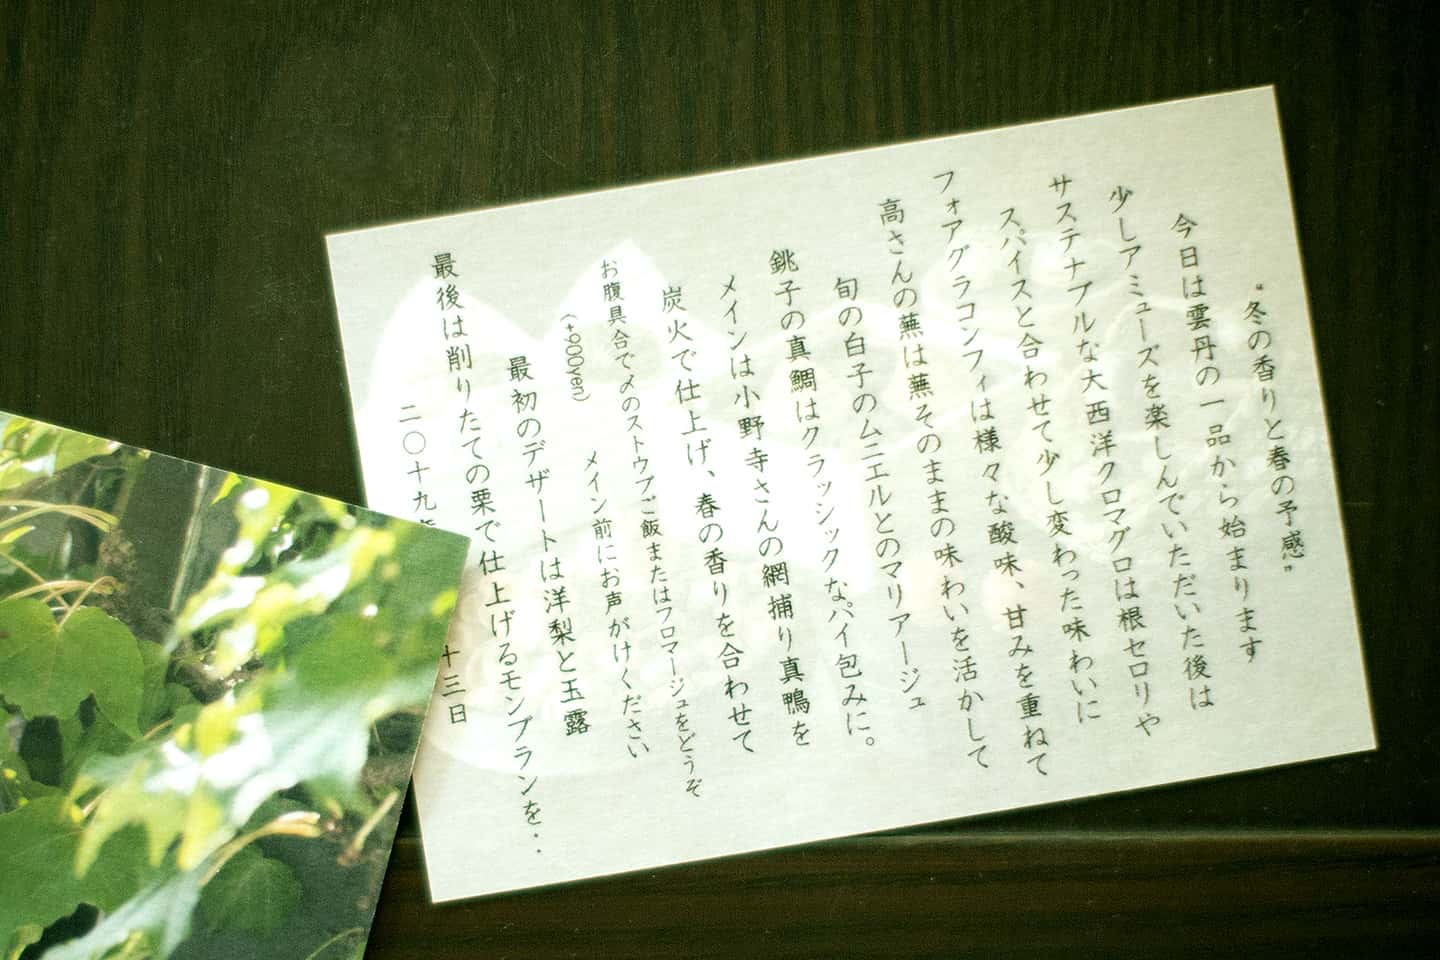 “冬の香りと春の予感”
今日は雲丹の一品から始まります
少しアミューズを楽しんでいただいた後は
サステナブルな大西洋クロマグロは根セロリや
スパイスと合わせて少し変わった味わいに
フォアグラコンフィは様々な酸味、甘みを重ねて
高さんの蕪は蕪そのままの味わいを活かして
旬の白子のムニエルとのマリアージュ
銚子の真鯛はクラッシックなパイ包みに。
メインは小野寺さんの網捕り真鴨を
炭火で仕上げ、春の香りを合わせて
お腹具合で〆のストウブご飯またはフロマージュをどうぞ
(+900yen)　メイン前にお声がけください
最初のデザートは洋梨と玉露
最後は削りたての栗で仕上げるモンブランを・・
二〇十九年 十三日